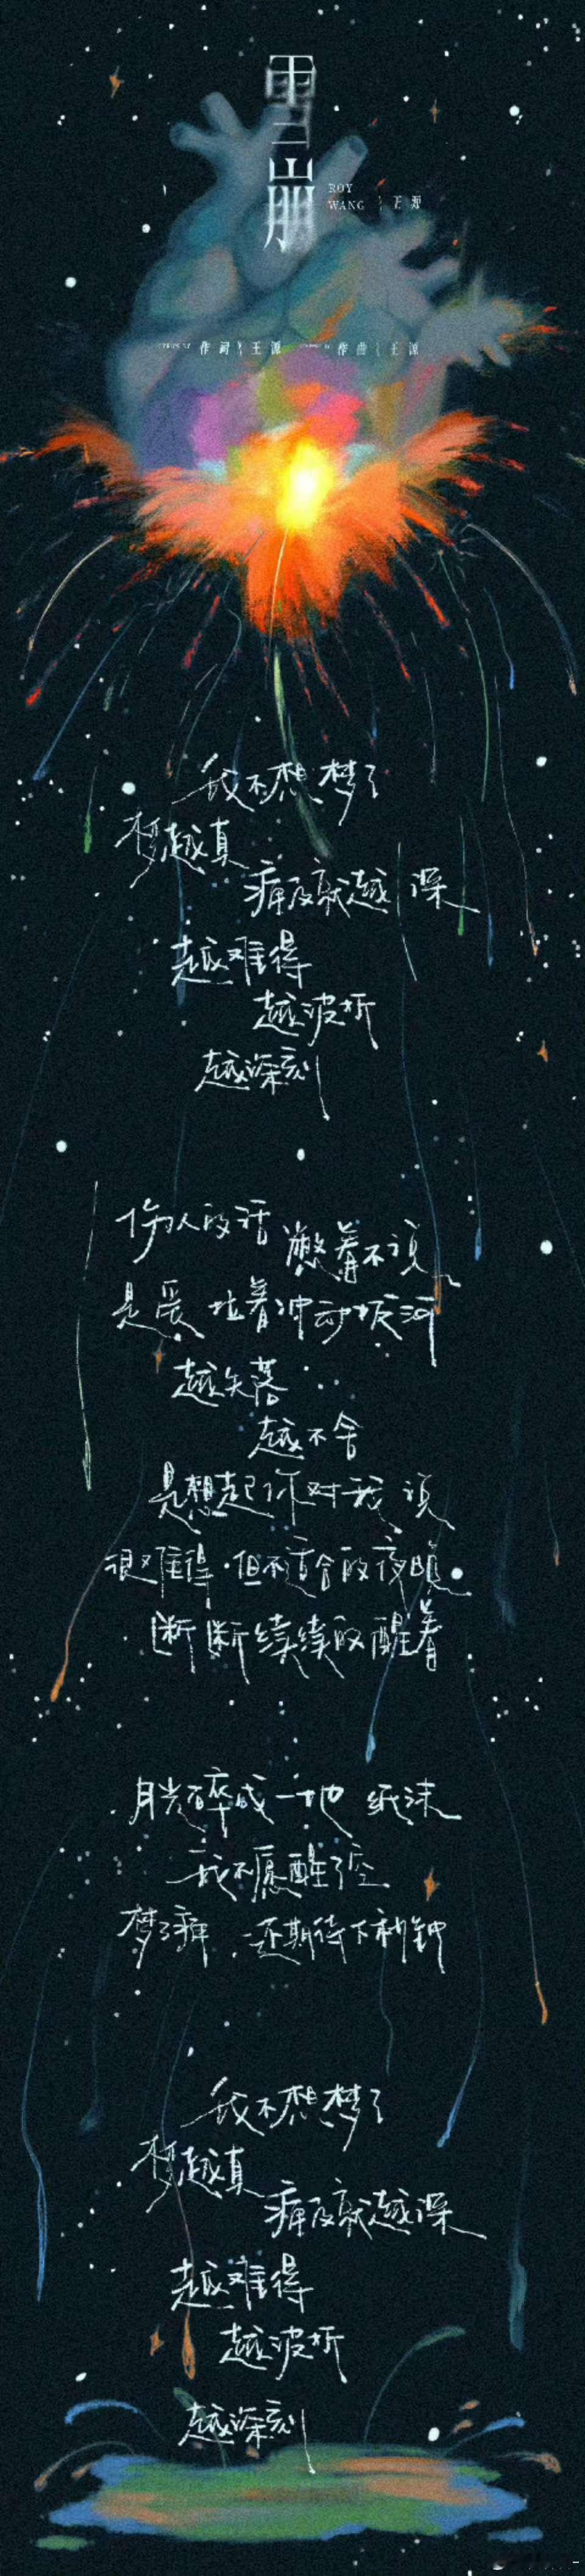 雪崩
ROY
WANG 王源
作词 王源 作曲 王源
我不想梦了
梦越真
痛及就越深
越难得
越波折
越深刻
伤人的话 憋着不说
是爱 拉着冲动拔河
越失落
越不舍
是想起你对我说
很难得 但不适合的夜晚
断断续续的醒着
月光碎成一地 纸沫
我不愿醒了空
梦了痛 还期待下秒钟
我不想梦了
梦越真
痛及就越深
越难得
越波折
越深刻